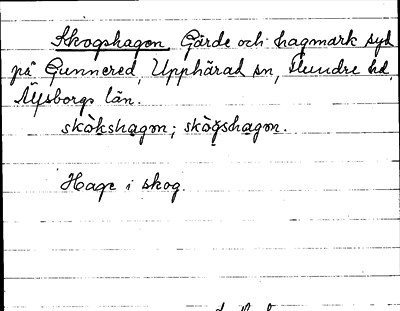 Skogshagen Gärde och hagmark syd
på Gunnered, Upphärad sn, Flundre hd,
Älvsborgs län.
skòkshagɷn; skògshagɷn.
Hage i skog.